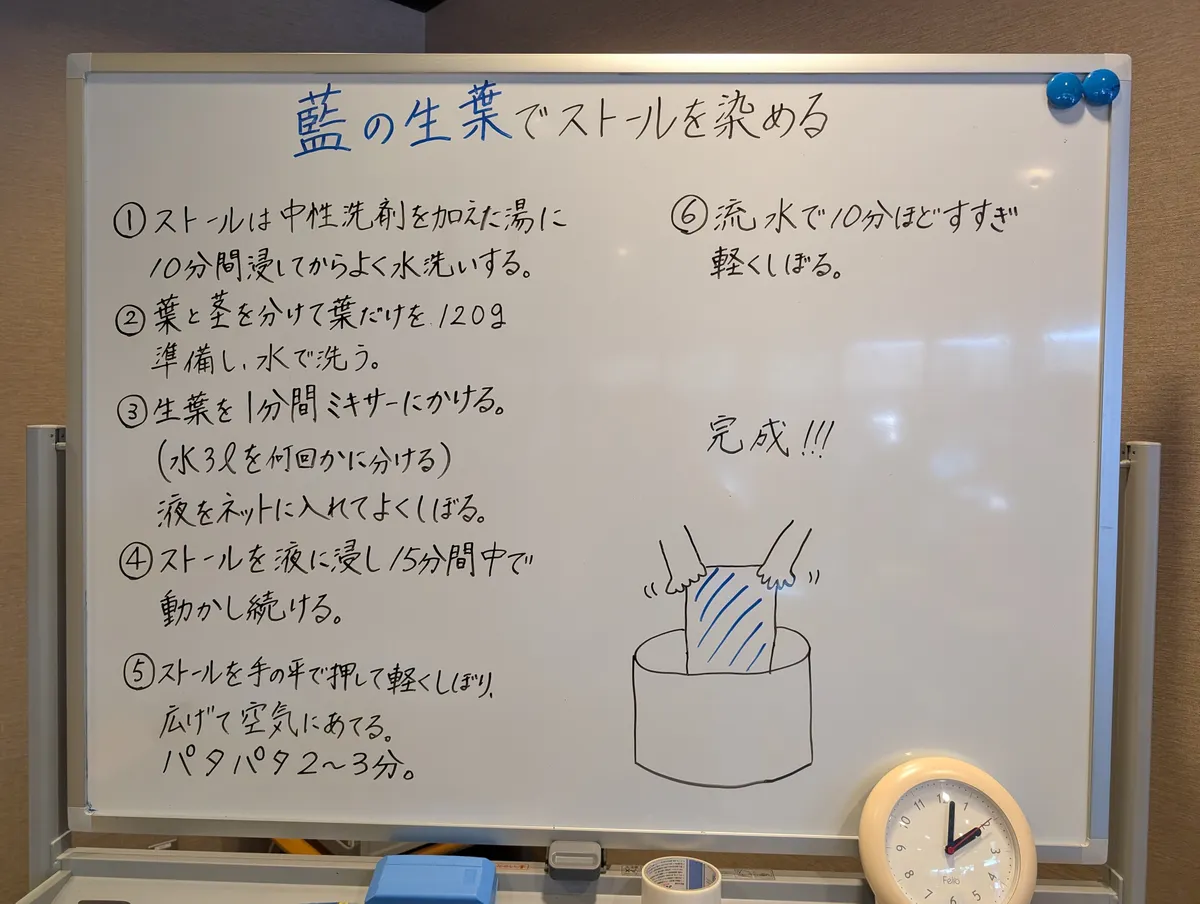 藍の生葉でストールを染める
① ストールは中性洗剤を加えた湯に
10分間浸してからよく水洗いする。
② 葉と茎を分けて葉だけを120g
準備し、水で洗う。
③ 生葉を1分間ミキサーにかける。
(水3ℓを何回かに分ける)
液をネットに入れてよくしぼる。
④ ストールを液に浸し15分間中で
動かし続ける。
⑤ ストールを手の平で押して軽くしぼり、
広げて空気にあてる。
パタパタ2〜3分。
⑥ 流水で10分ほどすすぎ
軽くしぼる。
完成!!!
Felio